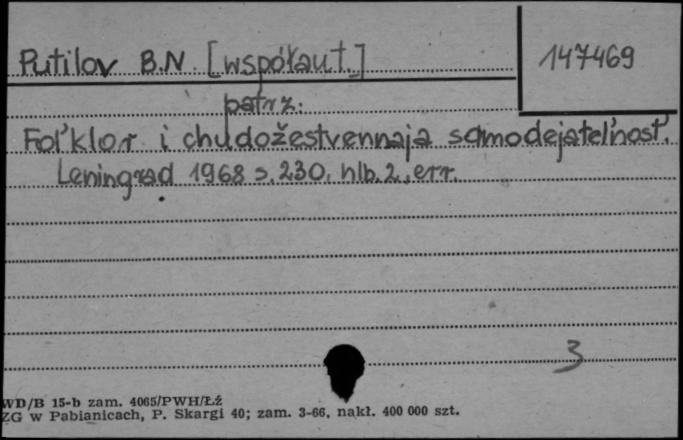 Putilov B.N. [współaut.]
147469
patrz:
Fol'klor i chudožestvennaja samodejatel'nost'.
Leningrad 1968 s. 230, nlb. 2, err.
3
WD/B 15-b zam. 4065/PWH/Łż
ZG w Pabianicach, P. Skargi 40; zam. 3-66, nakł. 400 000 szt.